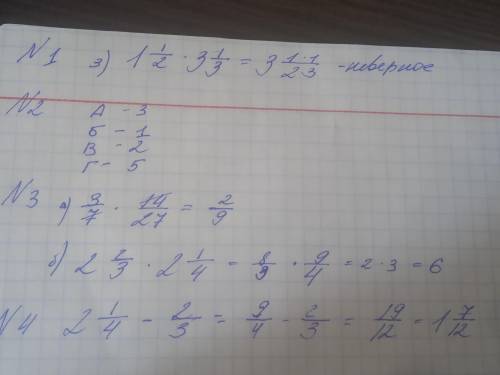 N1 з) 1 1/2 · 3 1/3 = 3 (1·1)/(2·3) - неверное
N2 А - 3
Б - 1
В - 2
Г - 5
N3 а) 3/7 · 14/27 = 2/9
б) 2 2/3 · 2 1/4 = 8/3 · 9/4 = 2 · 3 = 6
N4 2 1/4 - 2/3 = 9/4 - 2/3 = 19/12 = 1 7/12